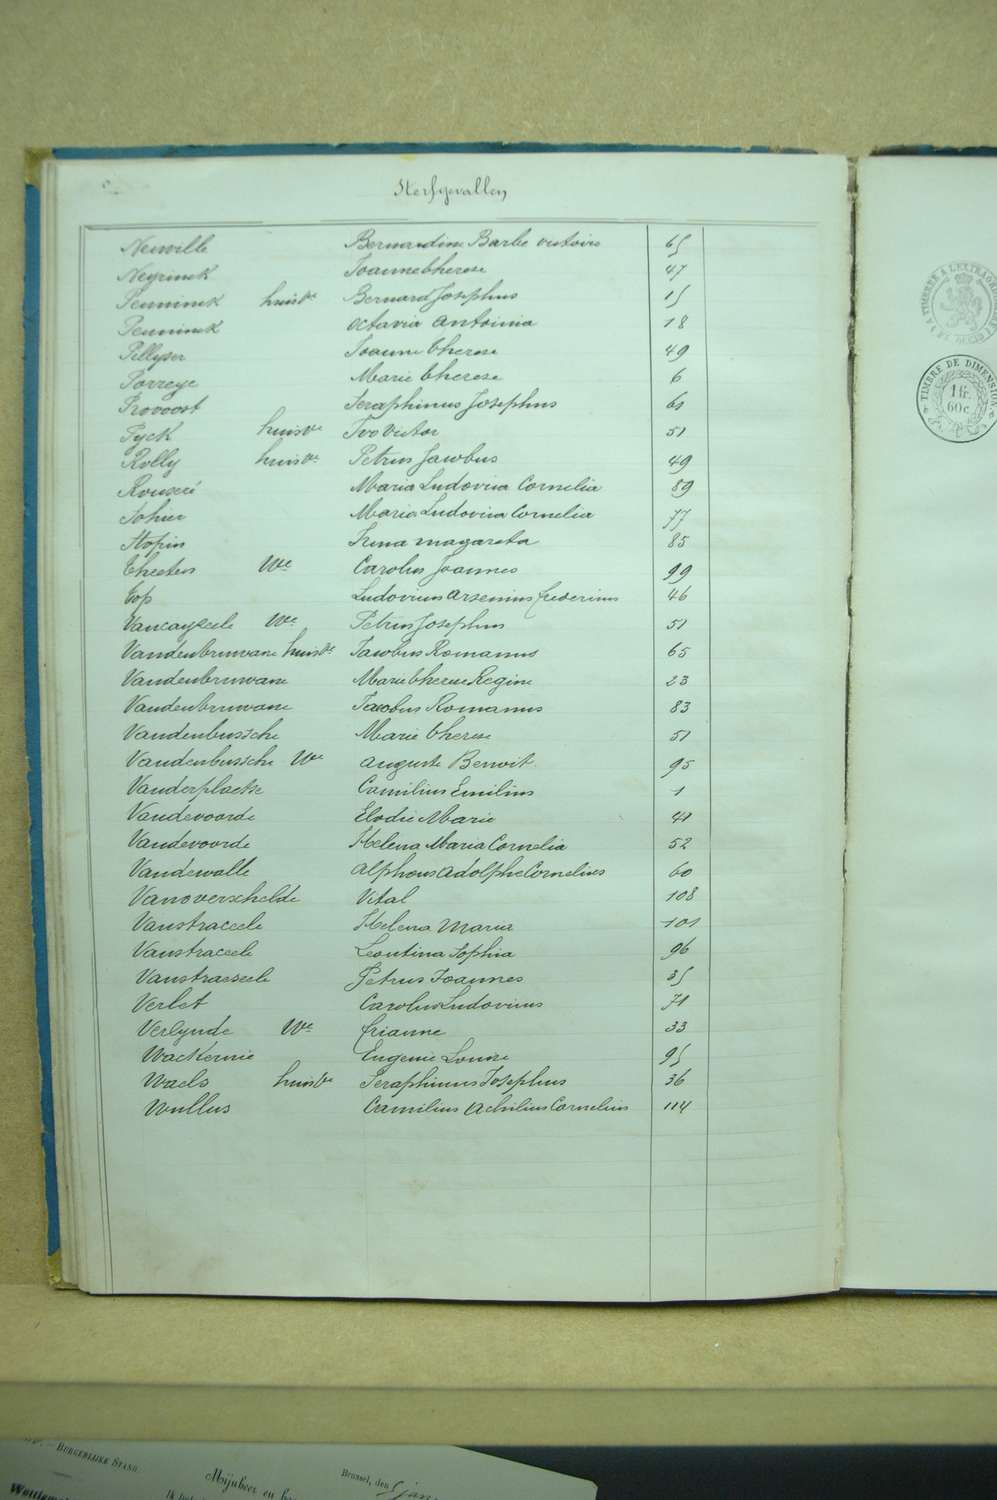 Sterfgevallen
Neuville Bernardine Barbe victoire 65
Neyrinck Joanne therese 47
Penninck huisve Bernard Josephus 15
Penninck Octavia Antoinia 18
Pellyser Joanne therese 49
Porreye Marie therese 6
Provoost Seraphinus Josephus 61
Pyck huisve Ivo Victor 51
Rolly huisve Petrus Jacobus 49
Rouseré Maria Ludovica Cornelia 89
Sohier Maria Ludovica Cornelia 77
Stopin Irma magareta 85
theeten We Carolus Joannes 99
top Ludovicus Arsenius frederious 46
Vancayseele We Petrus Josephus 51
Vandenbruwane huisve Jacobus Romanus 65
Vandenbruwane Marie therese Regine 23
Vandenbruwane Jacobus Romanus 83
Vandenbussche Marie therese 51
Vandenbussche We auguste Benoit 95
Vanderplaetse Camilius Emilius 1
Vandevoorde Elodie Marie 41
Vandevoorde Helena Maria Cornelia 52
Vandewalle alphons adolphe Cornelius 60
Vanoverschelde Vital 108
Vanstraceele Helena Maria 101
Vanstraceele Leontina Sophia 96
Vanstraeseele Petrus Joannes 35
Verlet Carolus Ludovicus 71
Verlynde We 33
Wackernie Eugenie Louise 95
Waels huisve Seraphinus Josephus 36
Wullus Camilius Achilius Cornelius 114
TIMBRE DE DIMENSION
1 fr.
60 c.
BURGERLIJKE STAND
Brussel, den 5 jan
Mijnheer en